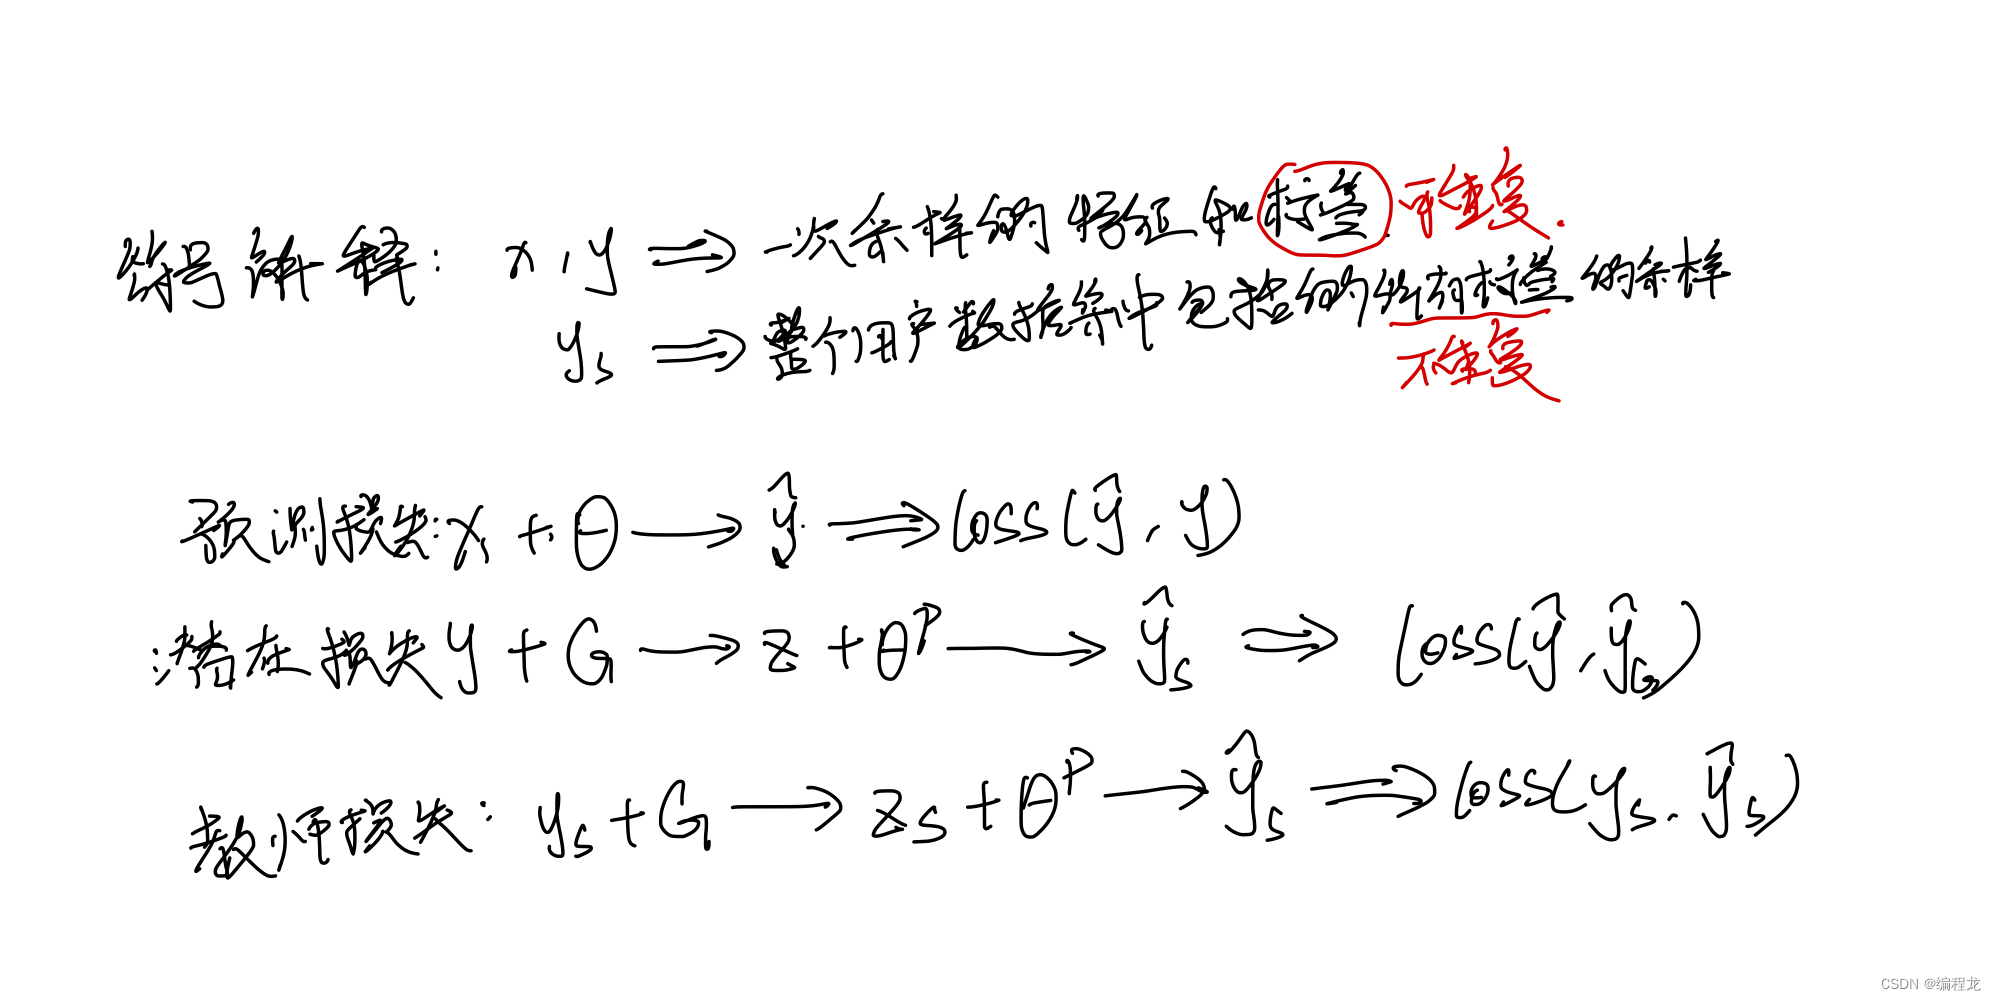 符号解释: x, y ⇒ 一次采样的特征和标签 可重复.
y_s ⇒ 整个用户数据集中包括的所有标签的采样
不重复
预测损失: x, + θ → ŷ ⇒ loss(ŷ, y)
:潜在损失 y + G → z + θ^P → ŷ_s ⇒ loss(ŷ, ŷ_G)
教师损失: y_s + G → z_s + θ^P → ŷ_s ⇒ loss(y_s, ŷ_s)
CSDN @编程龙